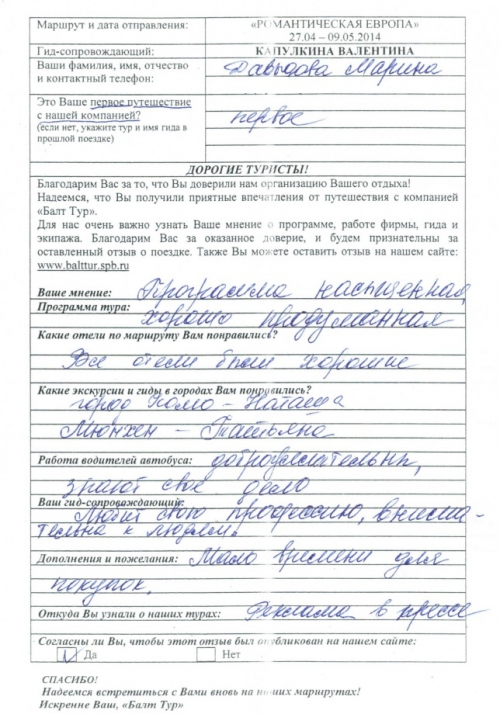 Маршрут и дата отправления: «РОМАНТИЧЕСКАЯ ЕВРОПА»
27.04 – 09.05.2014
Гид-сопровождающий: КАПУЛКИНА ВАЛЕНТИНА
Ваши фамилия, имя, отчество Давыдова Марина
и контактный телефон:
Это Ваше первое путешествие
с нашей компанией? первое
(если нет, укажите тур и имя гида в
прошлой поездке)
ДОРОГИЕ ТУРИСТЫ!
Благодарим Вас за то, что Вы доверили нам организацию Вашего отдыха!
Надеемся, что Вы получили приятные впечатления от путешествия с компанией
«Балт Тур».
Для нас очень важно узнать Ваше мнение о программе, работе фирмы, гида и
экипажа. Благодарим Вас за оказанное доверие, и будем признательны за
оставленный отзыв о поездке. Также Вы можете оставить отзыв на нашем сайте:
www.balttur.spb.ru
Ваше мнение: Программа насыщенная,
Программа тура: хорошо продуманная
Какие отели по маршруту Вам понравились?
Все отели были хорошие
Какие экскурсии и гиды в городах Вам понравились?
город Комо – Наташа
Мюнхен – Татьяна
Работа водителей автобуса: доброжелательны,
знают свое дело
Ваш гид-сопровождающий:
Любит свою профессию, внима-
тельна к людям.
Дополнения и пожелания: Мало времени для
покупок.
Откуда Вы узнали о наших турах: Реклама в прессе
Согласны ли Вы, чтобы этот отзыв был опубликован на нашем сайте:
Да Нет
СПАСИБО!
Надеемся встретиться с Вами вновь на наших маршрутах!
Искренне Ваш, «Балт Тур»